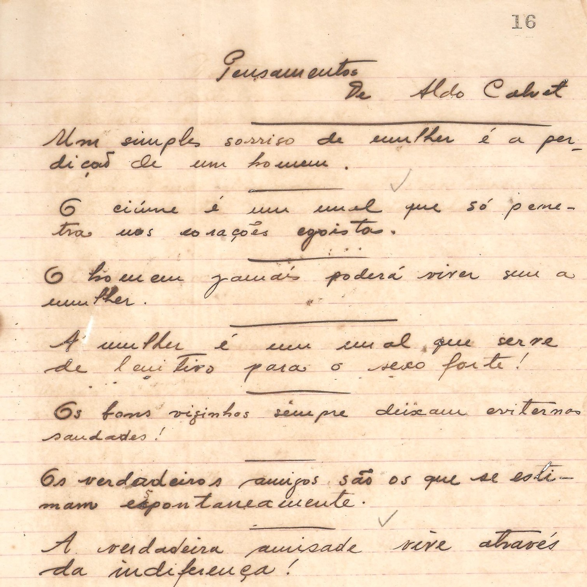 16
Pensamentos
De Aldo Calvet
Um simples sorriso de mulher é a per-
dição de um homem.
O ciúme é um mal que só pene-
tra nos corações egoistas.
O homem jamais poderá viver sem a
mulher.
A mulher é um mal que serve
de lenitivo para o sexo forte!
Os bons visinhos sempre deixam eviternas
saudades!
Os verdadeiros amigos são os que se esti-
mam espontaneamente.
A verdadeira amisade vive através
da indiferença!